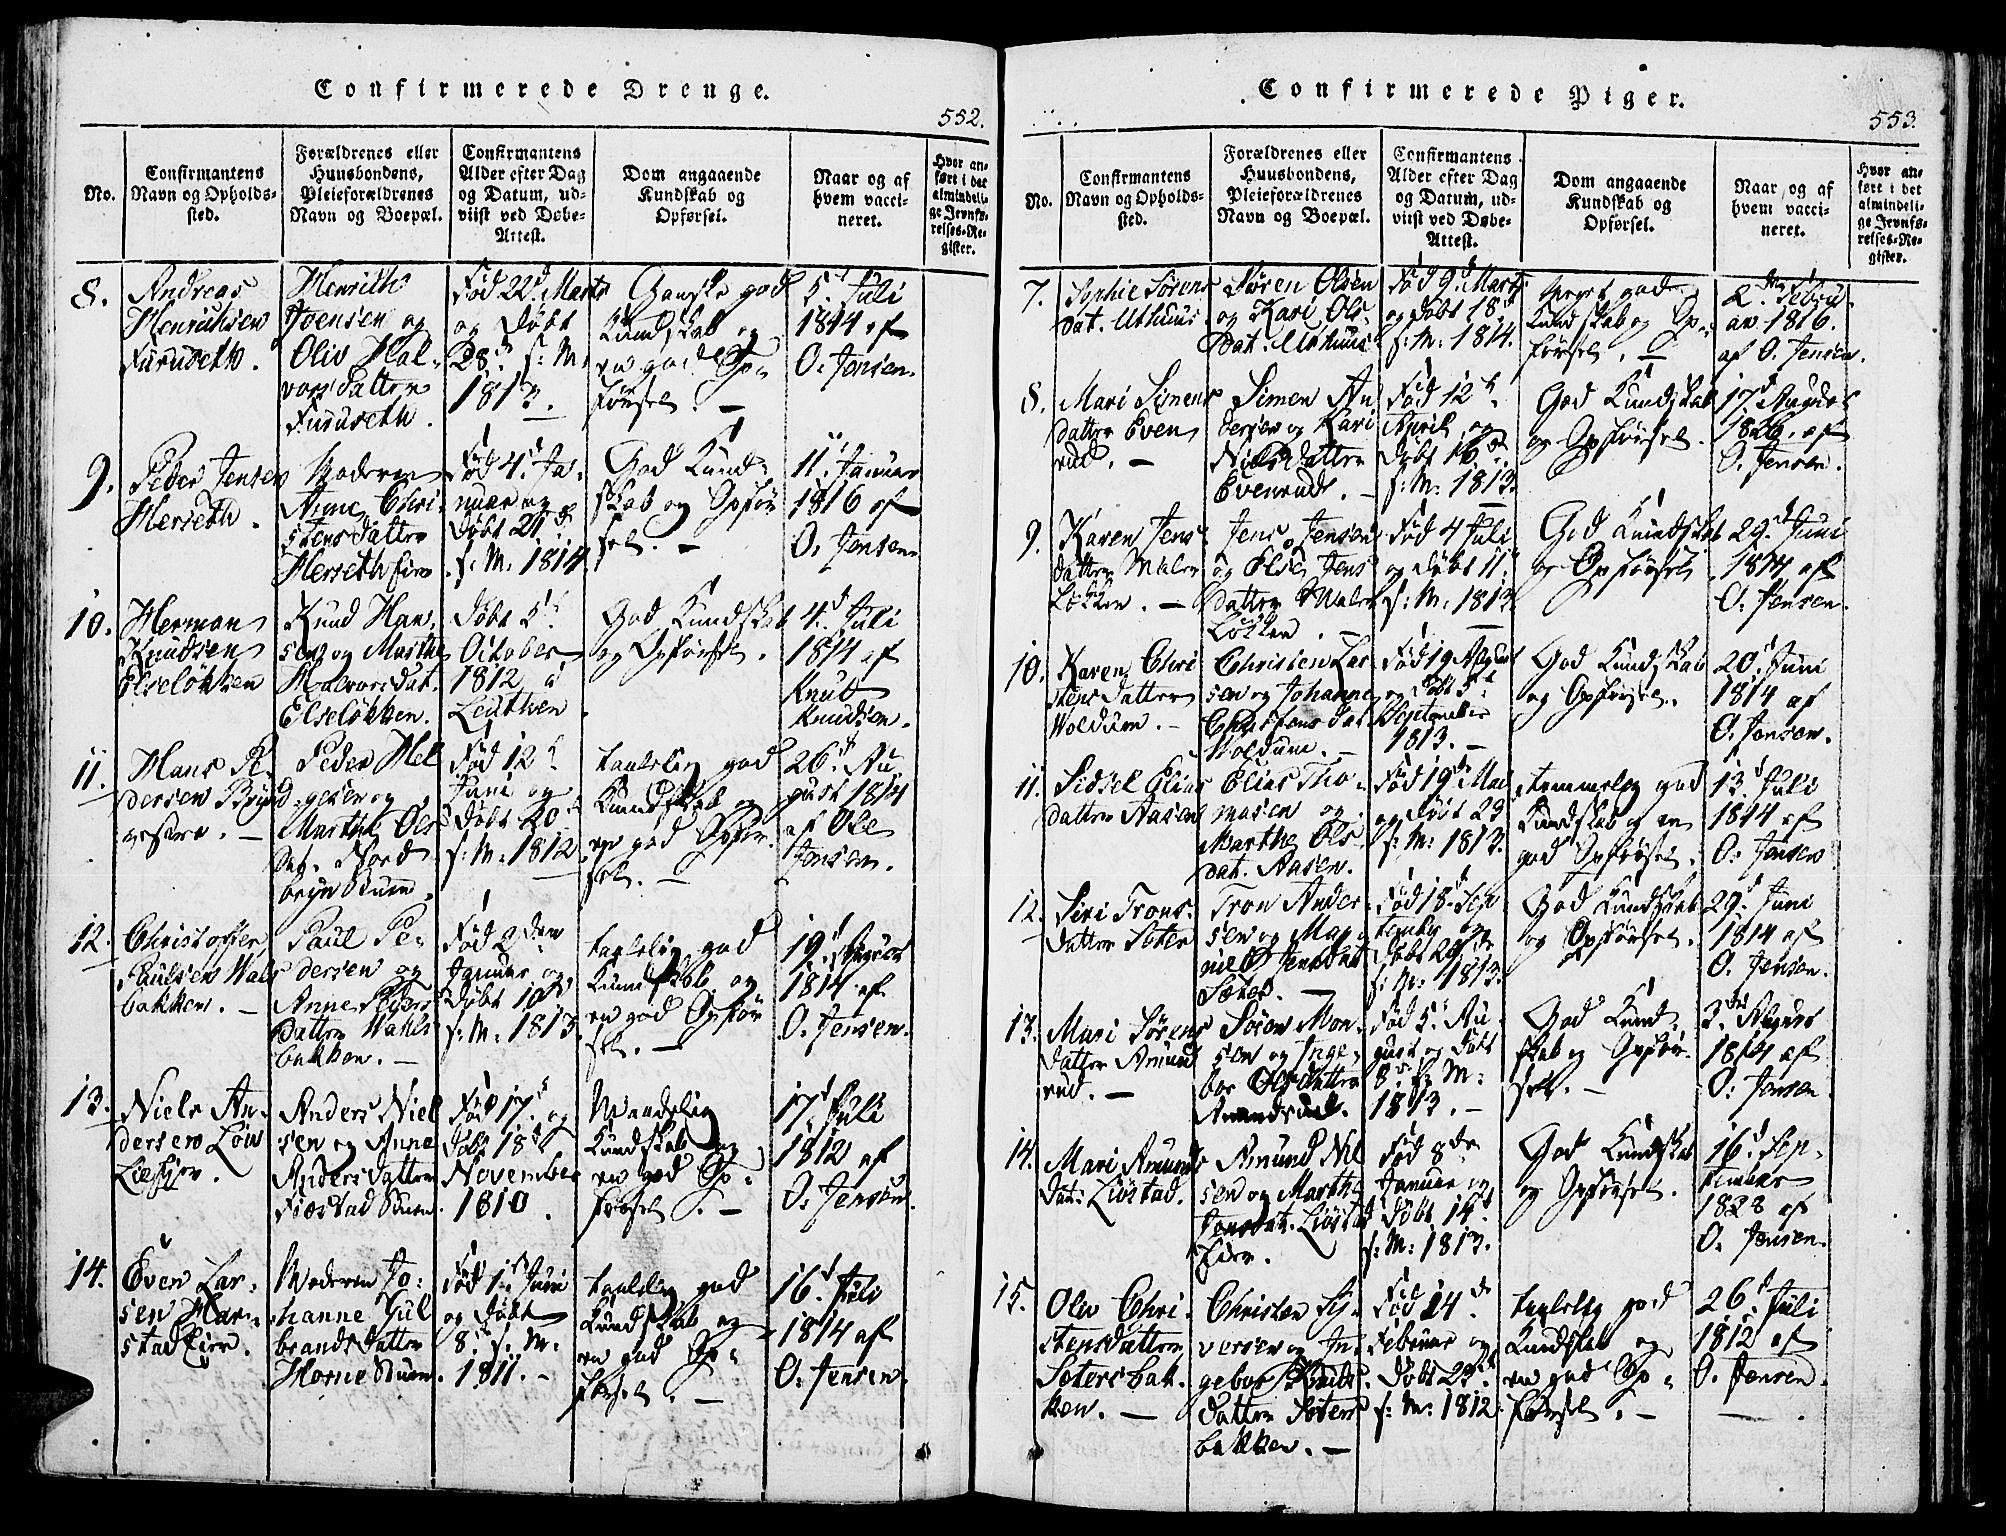 Confirmerede Drenge.
552.
No.
Confirmantens
Navn og Opholds-
sted.
Forældrenes eller
Huusbondens,
Pleieforældrenes
Navn og Boepæl.
Confirmantens
Alder efter Dag
og Datum, ud-
viist ved Døbe-
Attest.
Dom angaaende
Kundskab og
Opførsel.
Naar og af
hvem vacci-
neret.
Hvor an-
ført i det
almindeli-
ge Jevnfø-
relses-Re-
gister.
8.
Andreas
Henrichsen
Furuseth.
Henrich
Joensen og
Oliv Hal-
vorsdatter
Furuseth.
Fød 22d Marts
og døbt
28d s: M:
1813.
Ganske god
Kundskab og
en god Op-
førsel. –
5d Juli
1814 af
O. Jensen.
9.
Peder Jensen
Herseth.
Moderen
Anne Chri-
stensdatter
Herseth Eie
Fød 4d Ja-
nuar og
døbt 21de
s: M: 1814
God Kund-
skab og Opfør-
sel. –
11te Januar
1816 af
O. Jensen
10.
Herman
Knudsen
Elseløkken
Knud Han-
sen og Marthe
Halvorsdat.
Elseløkken.
Døbt 5t
October
1812 a
Leuthen
God Kundskab
og Opførsel.
4d Juli
1814 af
Knut
Knudsen.
11.
Hans Pe-
dersen Brynd
vestre. –
Peder Hel
gesen og
Marthe Ols
dat. Nord
bryn Stuen.
Fød 12t
Juni og
døbt 20de
s: M: 1812
taalelig god
Kundskab og
en god Opfør-
sel. –
26d Au-
gust 1814
af Ole
Jensen.
12.
Christoffer
Paulsen Wals
bakken. –
Paul Pe-
dersen og
Anne Peders
datter Wahls
bakken. –
Fød 2den
Januar og
døbt 10de
s: M: 1813
taalelig god
Kundskab og
en god Opfør
sel. –
19d August
1814 af
O. Jensen.
13.
Niels An-
dersen Løv
Lie Eie.
Anders Niel
sen og Anne
Andersdatter
Fiæstad Stuen.
Fød 17d og
døbt 18de
November
1810.
Maadelig
Kundskab og
en god Op-
førsel. –
17d Juli
1812 af
O. Jensen
14.
Even Lar-
sen Har-
stad Eie.
Moderen Jo-
hanne Gul
brandsdatter
Horne Stuen.
Fød 1ste Juni
og døbt
8de s: M:
1811. –
taalelig god
Kundskab og
en god Op-
førsel. –
16d Juli
1814 af
O. Jensen.
Confirmerede Piger.
553.
No.
Confirmantens
Navn og Opholds-
sted.
Forældrenes eller
Huusbondens,
Pleieforældrenes
Navn og Boepæl.
Confirmantens
Alder efter Dag
og Datum, ud-
viist ved Døbe-
Attest.
Dom angaaende
Kundskab og
Opførsel.
Naar og af
hvem vacci-
neret.
Hvor an-
ført i det
almindeli-
ge Jevnfø-
relses-Re-
gister.
7.
Sophie Sørens
dat. Uthuus
Søren Olsen
og Kari Ols
dat. Uthuus
Fød 9d Marts
og døbt 18d
s: M: 1814.
Meget god
Kundskab og Op-
førsel. –
2den Febru-
ar 1816.
af O. Jensen.
8.
Mari Simens
datter Even
rud. –
Simen An
dersen og Kari
Nielsdatter
Evenrud. –
Fød 12t
April og
døbt 16de
s: M: 1813.
God Kundskab
og Opførsel.
17d August
1826. af
O. Jensen.
9.
Karen Jens
datter Maler
Løkken. –
Jens Jensen
og Else Jens
datter Maler
Løkken. –
Fød 4 Juli
og døbt 11te
s: M: 1813.
God Kundskab
og Opførsel
29d Juni
1814 af
O. Jensen.
10.
Karen Chri
stensdatter
Woldum. –
Christen Lar
sen og Johanne
Christens dat
Woldum. –
Fød 19 August
og døbt 5t
September
1813. –
God Kundskab
og Opførsel.
20d Juni
1814 af
O. Jensen.
11.
Sidsel Elias
datter Aasen
Elias Tho-
masen og
Marthe Ols
dat. Aasen.
Fød 19de Mai
og døbt 23
s: M: 1813.
temmelig god
Kundskab og en
god Opførsel.
13d Juli
1814 af
O: Jensen
12.
Siri Trons-
datter Sæter
Tron Ander
sen og Mag
nild Jensdat
Sæter. –
Fød 18d Sep
tember og
døbt 26de
s: M: 1813.
God Kundskab
og Opførsel.
29d Juni
1814 af
O. Jensen.
13.
Mari Sørens
datter Amund
rud. –
Søren Mon-
sen og Inge-
bor Olsdatter
Amundsrud.
Fød 5t Au-
gust og døbt
8de s: M:
1813. –
God Kund-
skab og Opfør-
sel. –
3die August
1814 af
O: Jensen
14.
Mari Amunds
dat: Liøstad.
Amund Nil
sen og Marthe
Jensdat. Liøsta
Eier.
Fød 8de
Januar og
døbt 14d
s: M: 1813.
God Kundskab
og Opførsel.
16d Sep-
tember
1828 af
O. Jensen.
15.
Oliv Chri-
stensdatter
Sætersbak-
ken. –
Christen Sy-
versen og In-
gebor Knuds-
datter Sæters
bakken. –
Fød 14de
Februar og
døbt 23de
s: M: 1812
taalelig god
Kundskab og
en god Op-
førsel. –
26d Juli
1812 af
O. Jensen.